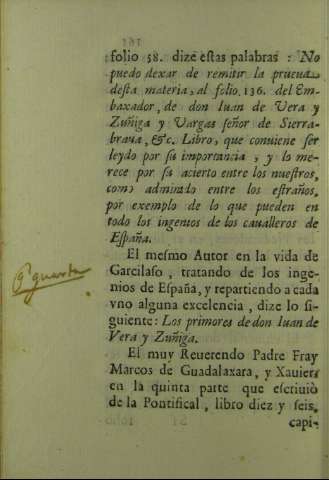 folio 58. dize estas palabras : No
puedo dexar de remitir la prueua
desta materia, al folio 136. del Em-
baxador, de don Iuan de Vera y
Zuñiga y Vargas señor de Sierra-
braua, &c. Libro, que conuiene ser
leydo por su importancia, y lo me-
rece por su acierto entre los nuestros,
como admirado entre los estraños,
por exemplo de lo que pueden en
todo los ingenios de los caualleros de
España.
El mesmo Autor en la vida de
Garcilaso, tratando de los inge-
nios de España, y repartiendo a cada
vno alguna excelencia, dize lo si-
guiente: Los primores de don Iuan de
Vera y Zuñiga.
El muy Reuerendo Padre Fray
Marcos de Guadalaxara, y Xauierr
en la quinta parte que escriuiò
de la Pontifical, libro diez y seis,
capi-